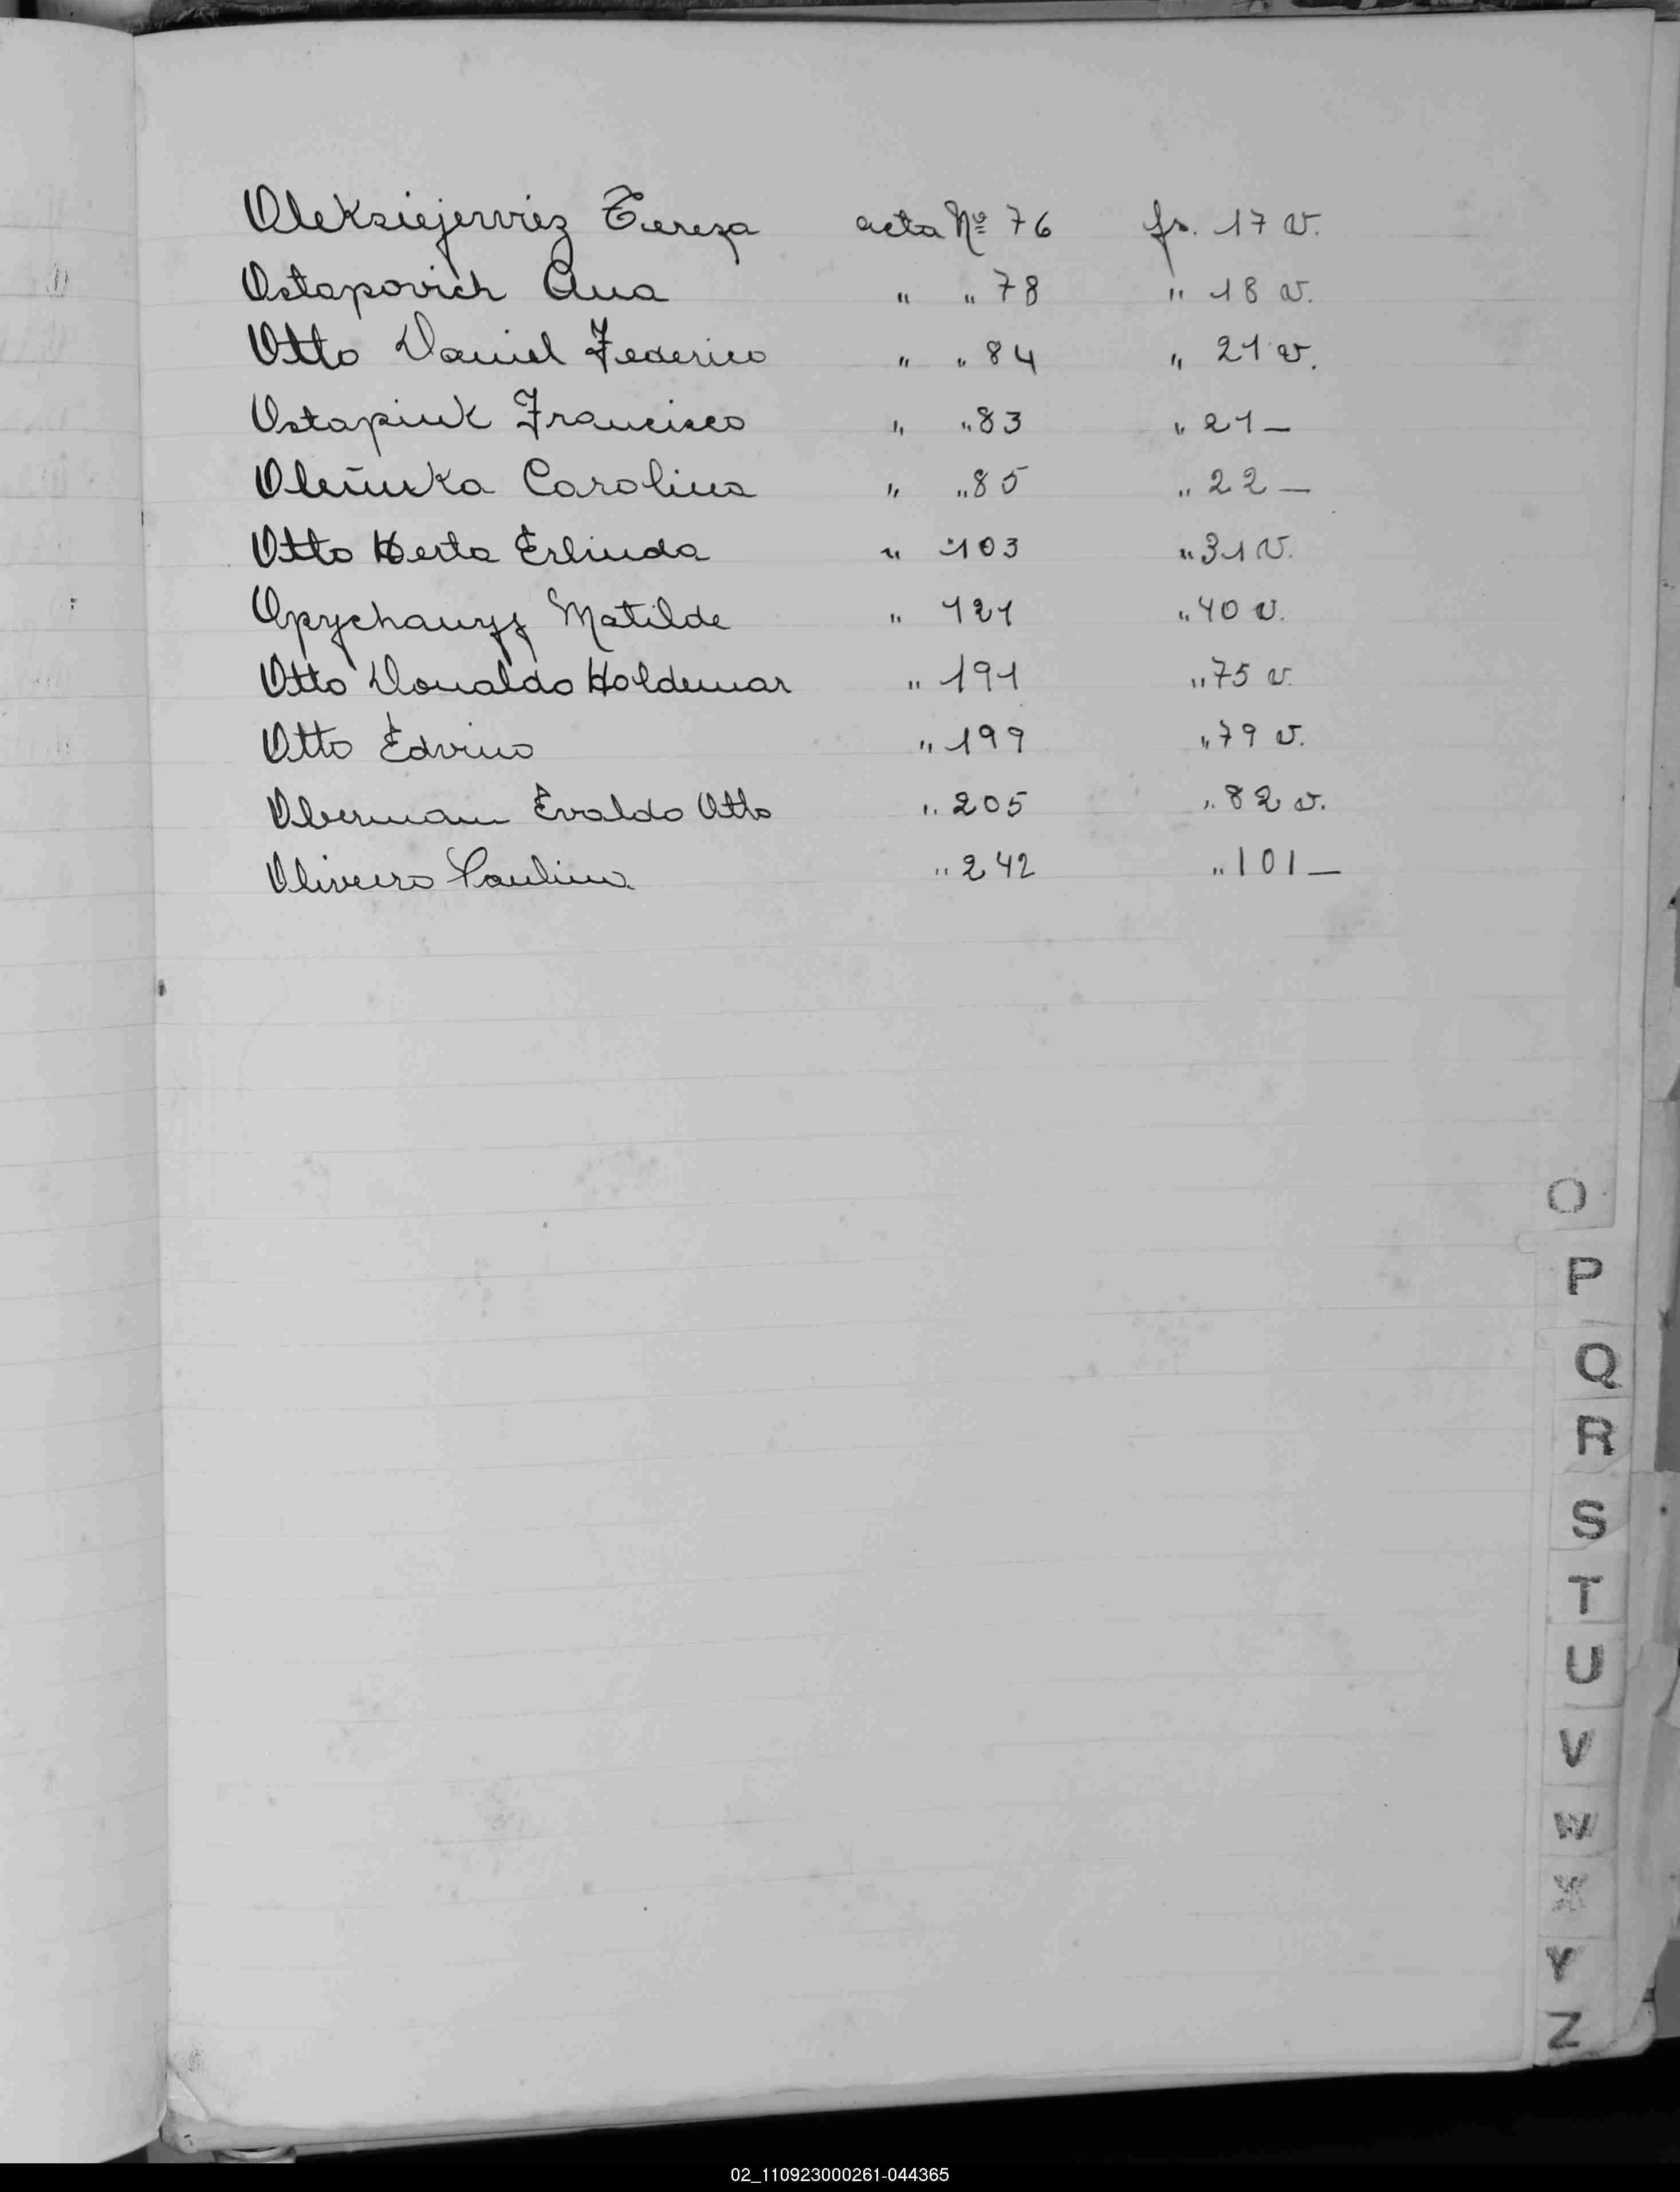 Oleksiejerviez Tereza acta Nº 76 fs. 17 v.
Ostapovich Ana " " 78 " 18 v.
Otto Daniel Federico " " 84 " 21 v.
Ostapiuk Francisco " " 83 " 21 —
Oleiñuka Carolina " " 85 " 22 —
Otto Herta Erlinda " " 103 " 31 v.
Opychanyj Matilde " 121 " 40 v.
Otto Donaldo Holdemar " 191 " 75 v.
Otto Edvino " 199 " 79 v.
Obermann Evaldo Otto " 205 " 82 v.
Oliveira Paulina " 242 " 101 —
O
P
Q
R
S
T
U
V
W
X
Y
Z
02_110923000261-044365